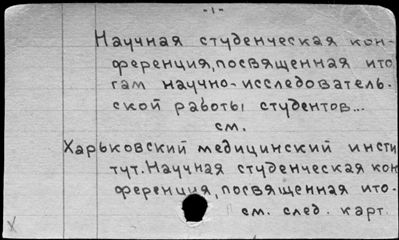 -1-
Научная студенческая кон-
ференция, посвященная ито
гам научно-исследователь.
ской работы студентов...
см.
Харьковский медицинский инсти
тут. Научная студенческая кон
ференция, посвященная ито-
см. след. карт.